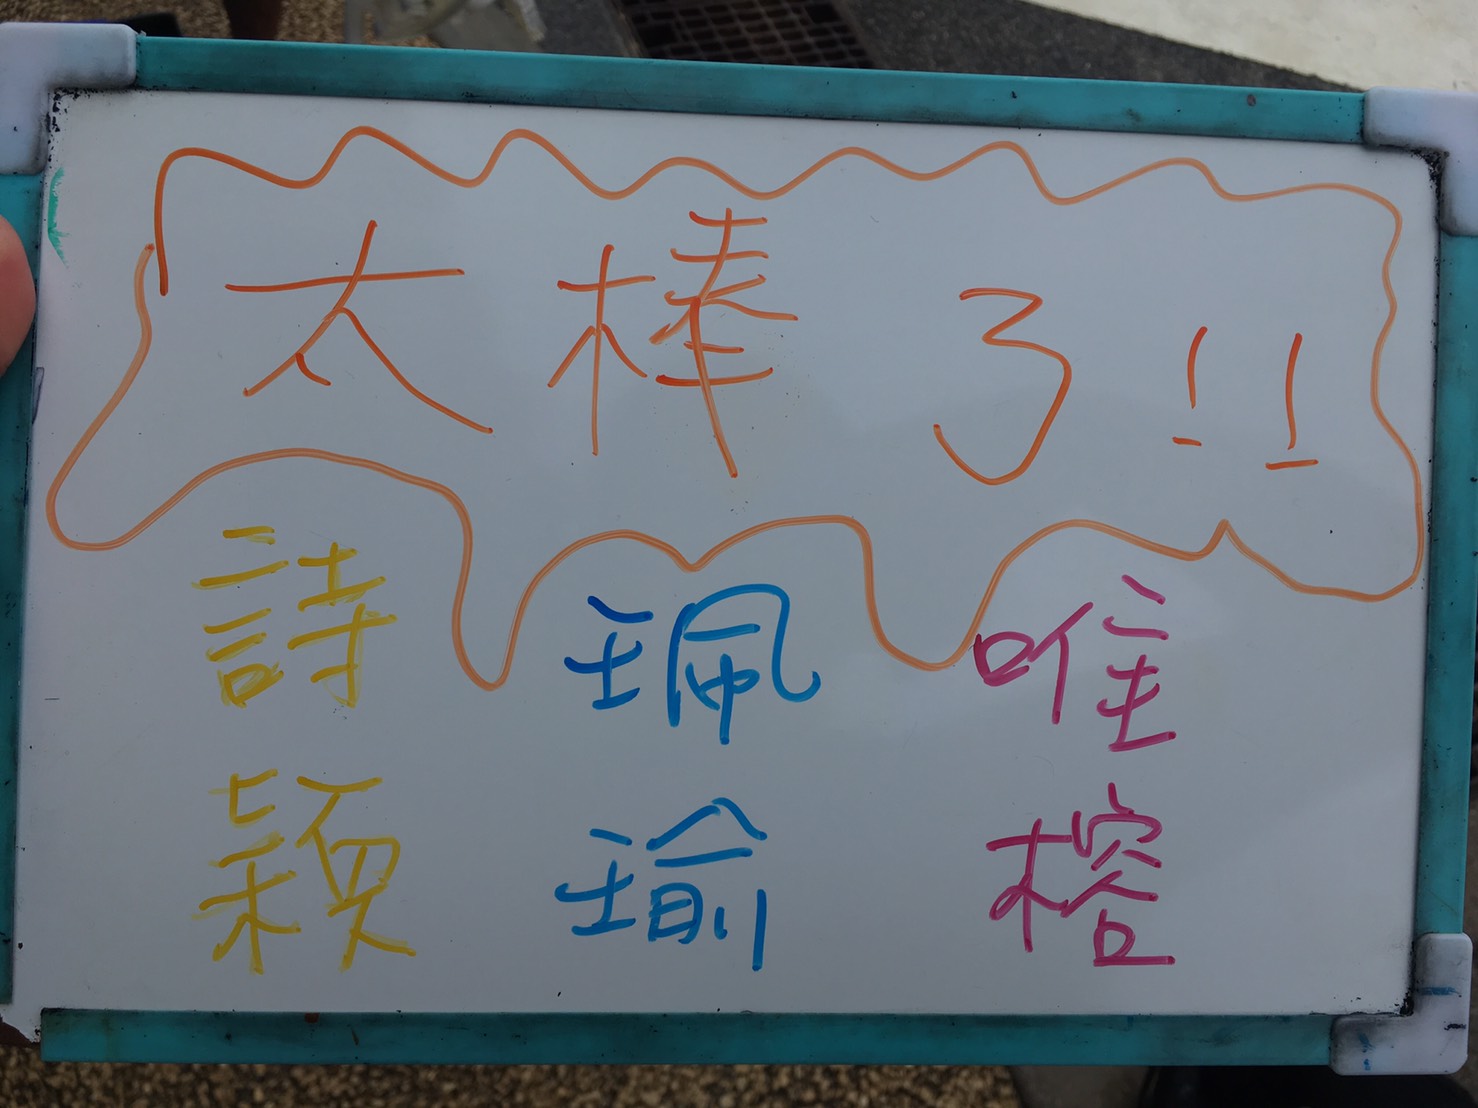 太棒了!!
詩穎
珮瑜
唯榕